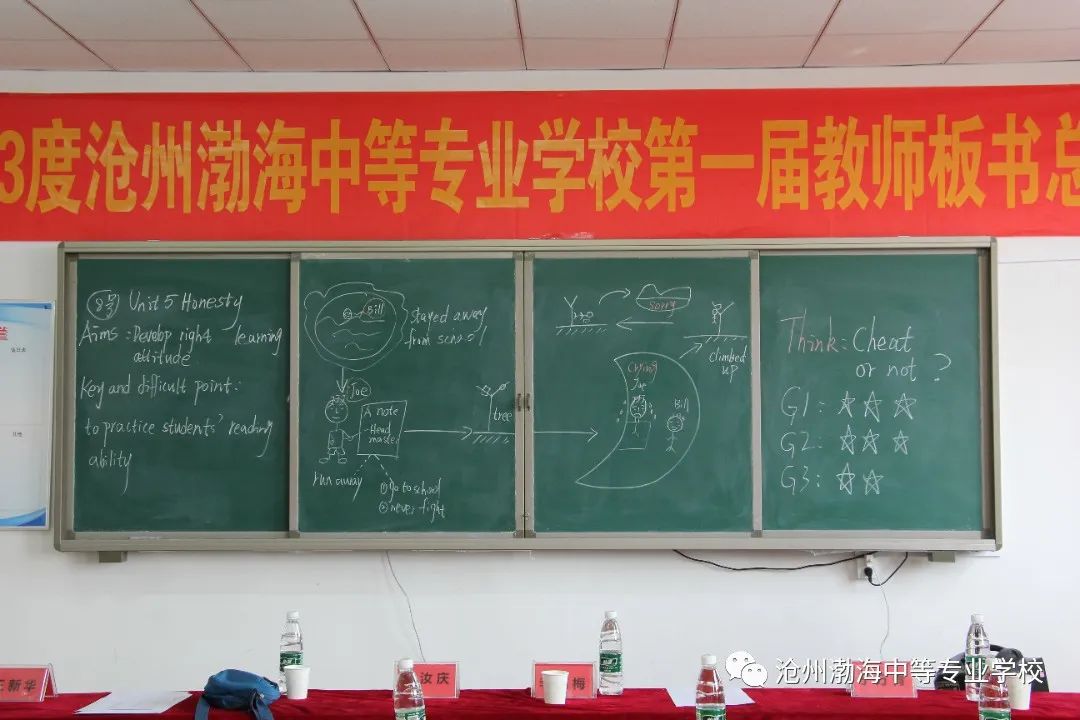 3度沧州渤海中等专业学校第一届教师板书总
8号 Unit 5 Honesty
Aims: Develop right learning
attitude
Key and difficult point:
to practice students' reading
ability
Bill
stayed away
from school
Joe
A note
-Head
master
run away
① go to school
② never fight
tree
sorry
climbed
up
Crying
Joe
Bill
Think: Cheat
or not?
G1: ☆☆☆
G2: ☆☆☆
G3: ☆☆
王新华
汝庆
梅
沧州渤海中等专业学校